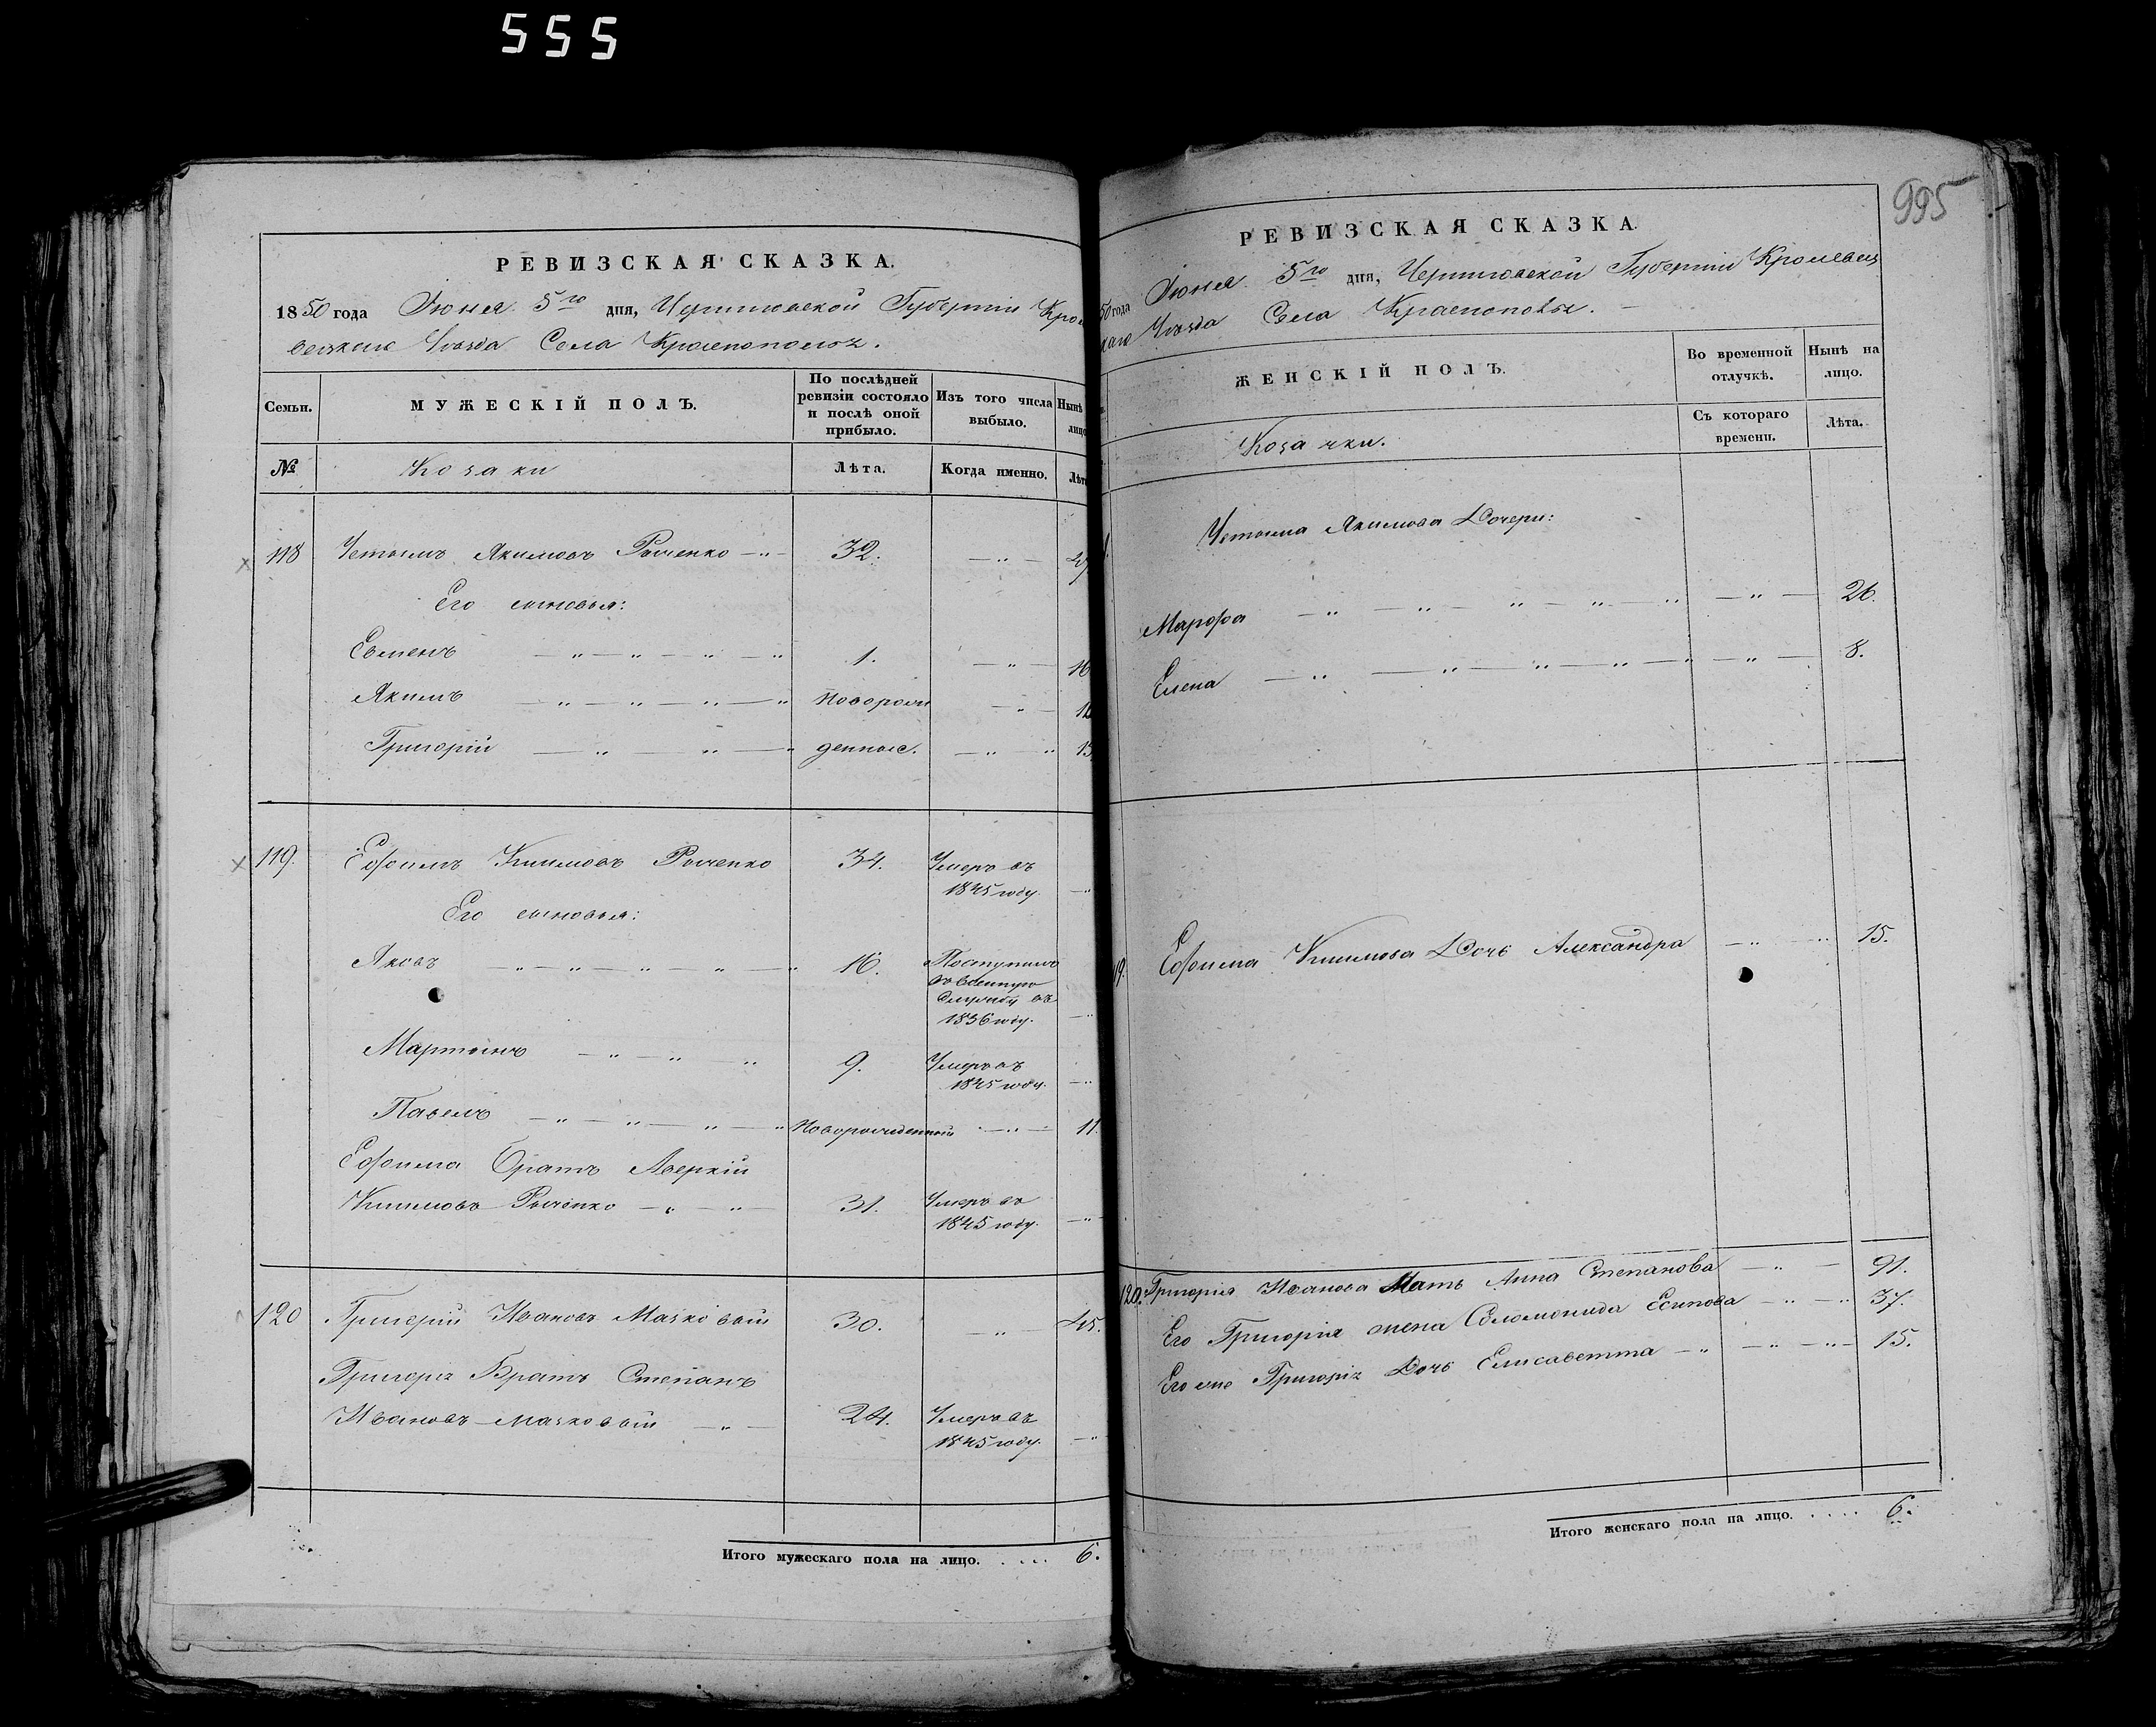 555
РЕВИЗСКАЯ СКАЗКА.
1850 года Июня 5го дня, Черниговской Губернии Кро
Уезда Села Краснополья.
Семьи.
МУЖЕСКІЙ ПОЛЪ.
По послѣдней ревизіи состояло и послѣ оной прибыло.
Изъ того числа выбыло.
Нынѣ лицо
№
Козаки
Лѣта.
Когда именно.
Лѣт
118 Устимъ Якимовъ 32.
Его сыновья:
Семенъ 1. 16
Якимъ новорож
Григорій денные. 13
119. Ефимъ Климовъ 34. Умеръ въ
1845 году.
Его сыновья:
Яковъ 16. Поступилъ
въ военную
службу въ
1836 году.
Мартынъ 9. Умеръ въ
1845 году.
Павелъ Новорожденный 11.
Ефима Братъ Аверкій
Климовъ 31. Умеръ въ
1845 году.
120 Григорій Ивановъ 30. 45.
Григорія Братъ Степанъ
Ивановъ 24. Умеръ въ
1845 году.
Итого мужескаго пола на лицо. .... 6.
995
РЕВИЗСКАЯ СКАЗКА.
50 года Июня 5го дня, Черниговской Губерніи Кролевец
каго Уѣзда Села Краснополья.
ЖЕНСКІЙ ПОЛЪ.
Во временной отлучкѣ.
Нынѣ на лицо.
Козачки.
Съ котораго времени.
Лѣта.
Устима Якимова Дочери:
Марфа 26.
Елена 8.
19. Ефима Климова Дочь Александра 15.
120. Григорія Иванова Мать Анна Степанова 91.
Его Григорія жена Соломонида Есипова 37.
Его же Григорія Дочь Елисаветта 15.
Итого женскаго пола на лицо. .... 6.